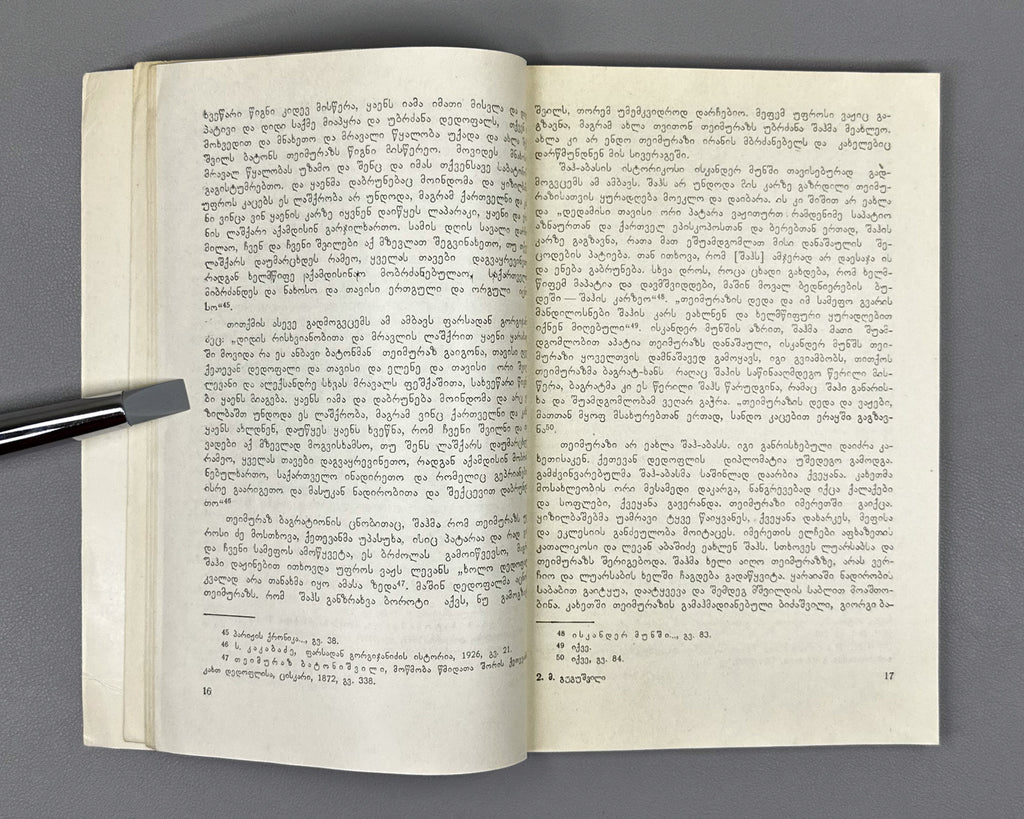 ხვეწარი წიგნი კიდევ მისწერა, ყაენს იამა იმათი მისვლა და
პატივი და დიდი საქმე მიაპყრა და უბრძანა დედოფალს,
მოხვედით და მნახეთო და მრავალი წყალობა უქადა და ახლა
შვილს ბატონს თეიმურაზს წიგნი მისწერეო. მოვიდეს
მრავალ წყალობას უზამო და შენც და იმას თქვენსავე
გაგისტუმრებთო. და ყაენმა დაბრუნებაც მოინდომა და
უფროს კაცებს ეს ლაშქრობა არ უნდოდა, მაგრამ ქართველნი და
ნი ვინცა ვინ ყაენის კარზე იყვნენ დაიწყეს ლაპარაკი, ყაენი და
ნის ლაშქარი აქამდისინ გარჯილხართო. სამის დღის სავალი
მილაო, ჩვენ და ჩვენი შვილები აქ მზევლათ შეგვინახეთო, თუ
ლაშქარს დაუმარცხდეს რამეო, ყველას თავები დაგვაყრევინეთო
რადგან ხელმწიფე აქამდისინაო მობრძანებულაო,
მიბრძანდეს და ნახოსო და თავისი ერთგული და ორგული
სო“⁴⁵.
თითქმის ასევე გადმოგვცემს ამ ამბავს ფარსადან
ძეც: „დიდის რისხვიანობითა და მრავლის ლაშქრით ყაენი
ში მოვიდა რა ეს ანბავი ბატონმან თეიმურაზ გაიგონა, თავისი
ქეთევან დედოფალი და თავისი და ელენე და თავისი ორი
ლევანი და ალექსანდრე სხვას მრავალს ფეშქაშითა, სახვეწარი
ბი ყაენს მიაგება. ყაენს იამა და დაბრუნება მოინდომა და არც
ზილბაშთ უნდოდა ეს ლაშქრობა, მაგრამ ვინც ქართველნი და
ყაენს ახლდნენ, დაუწყეს ყაენს ხვეწნა, რომ ჩვენი შვილნი და
ვადები აქ მზევლად მოგვისხამსო, თუ შენს ლაშქარს
რამეო, ყველას თავები დაგვაყრევინეთო, რადგან აქამდისინ
ნებულხართო, საქართველო ინადირეთო და რომელიც
ისრე გაარიგეთო და მასუკან ნადირობითა და შექცევით
თო“⁴⁶
თეიმურაზ ბაგრატიონის ცნობითაც, შაჰმა რომ თეიმურაზს
როსი ძე მოსთხოვა, ქეთევანმა უპასუხა, ისიც პატარაა და
და ჩვენი სამეფოს ამოწყვეტა, ეს ბრძოლას გამოიწვევსო,
შაჰი დაჟინებით ითხოვდა უფროს ვაჟს ლევანს „ხოლო
კვალად არა თანახმა იყო ამასა ზედა⁴⁷. მაშინ დედოფალმა
თეიმურაზს. რომ შაჰს განზრახვა ბოროტი აქვს, ნუ
45 პარიჟის ქრონიკა..., გვ. 38.
46 ს. კაკაბაძე, ფარსადან გორგიჯანიძის ისტორია, 1926, გვ. 21.
47 თეიმურაზ ბატონიშვილი, მოწმობა წმიდათა შორის
კახთ დედოფლისა, ცისკარი, 1872, გვ. 338.
16
შვილს, თორემ უმემკვიდროდ დარჩებიო. მეფემ უფროსი ვაჟიც გა-
გზავნა, მაგრამ ახლა თვითონ თეიმურაზს უბრძანა შაჰმა მეახლეო.
ახლა კი არ ენდო თეიმურაზი ირანის მბრძანებელს და კახელებიც
დარწმუნდნენ მის სივერაგეში.
შაჰ-აბასის ისტორიკოსი ისკანდერ მუნში თავისებურად გად-
მოგვცემს ამ ამბავს. შაჰს არ უნდოდა მის კარზე გაზრდილი თეიმუ-
რაზისათვის ყურადღება მოეკლო და დაიბარა. ის კი შიშით არ ეახლა
და „დედამისი თავისი ორი პატარა ვაჟითურთ რამდენიმე საპატიო
აზნაურთან და ქართველ ეპისკოპოსთან და ბერებთან ერთად, შაჰის
კარზე გაგზავნა, რათა მათ ეშუამდგომლათ მისი დანაშაულის შე-
ცოდების პატიება. თან ითხოვა, რომ [შაჰს] ამჯერად არ დაესაჯა ის
და ენება გაბრუნება. სხვა დროს, როცა ცხადი გახდება, რომ ხელმ-
წიფემ მაპატია და დავმშვიდდები, მაშინ მოვალ ბედნიერების ბუ-
დეში — შაჰის კარზეო“⁴⁸. „თეიმურაზის დედა და იმ სამეფო გვარის
მანდილოსნები შაჰის კარს ეახლნენ და ხელმწიფური ყურადღებით
იქნენ მიღებული“⁴⁹. ისკანდერ მუნშის აზრით, შაჰმა მათი შუამ-
დგომლობით აპატია თეიმურაზს დანაშაული, ისკანდერ მუნშს თეი-
მურაზი ყოველთვის დამნაშავედ გამოყავს, იგი გვიამბობს, თითქოს
თეიმურაზმა ბაგრატ-ხანს რაღაც შაჰის საწინააღმდეგო წერილი მის-
წერა, ბაგრატმა კი ეს წერილი შაჰს წარუდგინა, რამაც შაჰი განარის-
ხა და შუამდგომლობამ ვეღარ გაჭრა. „თეიმურაზის დედა და ვაჟები,
მათთან მყოფ მსახურებთან ერთად, სანდო კაცებით ერაყში გაგზავ-
ნა⁵⁰.
თეიმურაზი არ ეახლა შაჰ-აბასს. იგი განრისხებული დაიძრა კა-
ხეთისაკენ. ქეთევან დედოფლის დიპლომატია უშედეგო გამოდგა.
გამძვინვარებულმა შაჰ-აბასმა საშინლად დაარბია ქვეყანა. კახეთმა
მოსახლეობის ორი მესამედი დაკარგა, ნანგრევებად იქცა ქალაქები
და სოფლები, ქვეყანა გავერანდა. თეიმურაზი იმერეთში გაიქცა.
ყიზილბაშებმა უამრავი ტყვე წაიყვანეს, ქვეყანა დახარკეს, მეფისა
და ეკლესიის განძეულობა მოიტაცეს. იმერეთის ელჩები აფხაზეთის
კათალიკოსი და ლევან აბაშიძე ეახლნენ შაჰს. სთხოვეს ლუარსაბსა და
თეიმურაზს შერიგებოდა. შაჰმა ხელი აიღო თეიმურაზზე, არას ვერ-
ჩიო და ლუარსაბის ხელში ჩაგდება გადაწყვიტა. ყარაიაში ნადირობის
საბაბით გაიტყუა, დაატყვევა და შემდეგ მშვილდის საბლით მოაშთო-
ბინა. კახეთში თეიმურაზის გამაჰმადიანებული ბიძაშვილი, გიორგი ბა-
48 ისკანდერ მუნში..., გვ. 83.
49 იქვე.
50 იქვე, გვ. 84.
2. მ. გეგუშვილი
17